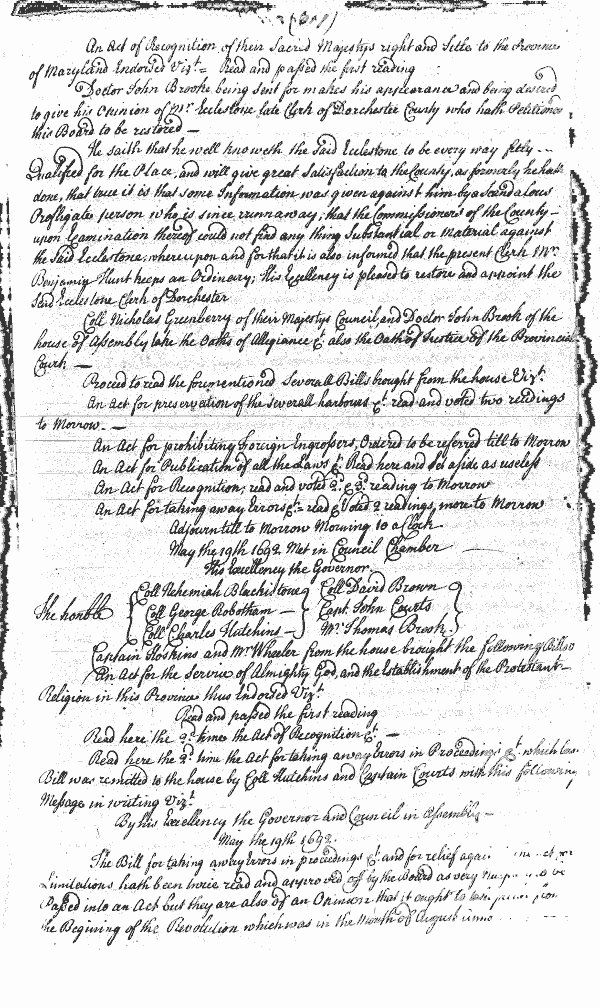 An Act of Recognition of their Sacred Majestys right and Title to the Province
of Maryland Endorsed Vizt = Read and passed the first reading
Doctor John Brooke being Sent for makes his appearance and being desired
to give his Opinion of Mr Ecclestone late Clerk of Dorchester County who hath Petitioned
this Board to be restored —
He saith that he well knoweth the Said Ecclestone to be every way fitly
Qualified for the Place, and will give great Satisfaction to the County, as formerly he hath
done, that true it is that some Information was given against him by a Scandalous
Profligate person who is since runn away, that the Commissioners of the County —
upon Examination thereof could not find any thing Substantial or Material against
the Said Ecclestone, whereupon and for that it is also informed that the present Clerk Mr
Benjamin Hunt keeps an Ordinary; His Excellency is pleased to restore and appoint the
Said Ecclestone Clerk of Dorchester
Coll Nicholas Greenberry of their Majestys Council, and Doctor John Brook of the
house of Assembly take the Oaths of Allegiance &c also the Oath of Justice of the Provincial
Court —
Proceed to read the forementioned Severall Bills brought from the house Vizt
An Act for preservation of the Severall harbours &c read and voted two readings
to Morrow. —
An Act for prohibiting Foreign Engrossers, Ordered to be referred till to Morrow
An Act for Publication of all the Laws &c Read here and Set aside as useless
An Act for Recognition, read and voted 2d & 3d reading to Morrow
An Act for taking away Errors &c = read & Voted 2 readings, more to Morrow
Adjourn till to Morrow Morning 10 a Clock
May the 19th 1692 Met in Council Chamber
His Excellency the Governor
The honble { Coll Nehemiah Blackistone } Coll David Brown
Coll George Robotham — Capt John Courts
Coll Charles Hutchins — Mr Thomas Brook
Captain Hoskins and Mr Wheeler from the house brought the following Bills
An Act for the Service of Almighty God, and the Establishment of the Protestant —
Religion in this Province thus Endorsed Vizt
Read and passed the first reading
Read here the 2d time the Act of Recognition &c —
Read here the 2d time the Act for taking away Errors in Proceedings &c which
Bill was remitted to the house by Coll Hutchins and Captain Courts with this following
Message in writing Vizt
By his Excellency the Governor and Council in Assembly —
May the 19th 1692.
The Bill for taking away Errors in proceedings &c and for relief
Limitations, hath been twice read and approved off by the Board as very
Passed into an Act but they are also of an Opinion that it ought to
the Begining of the Revolution which was in the Month of August